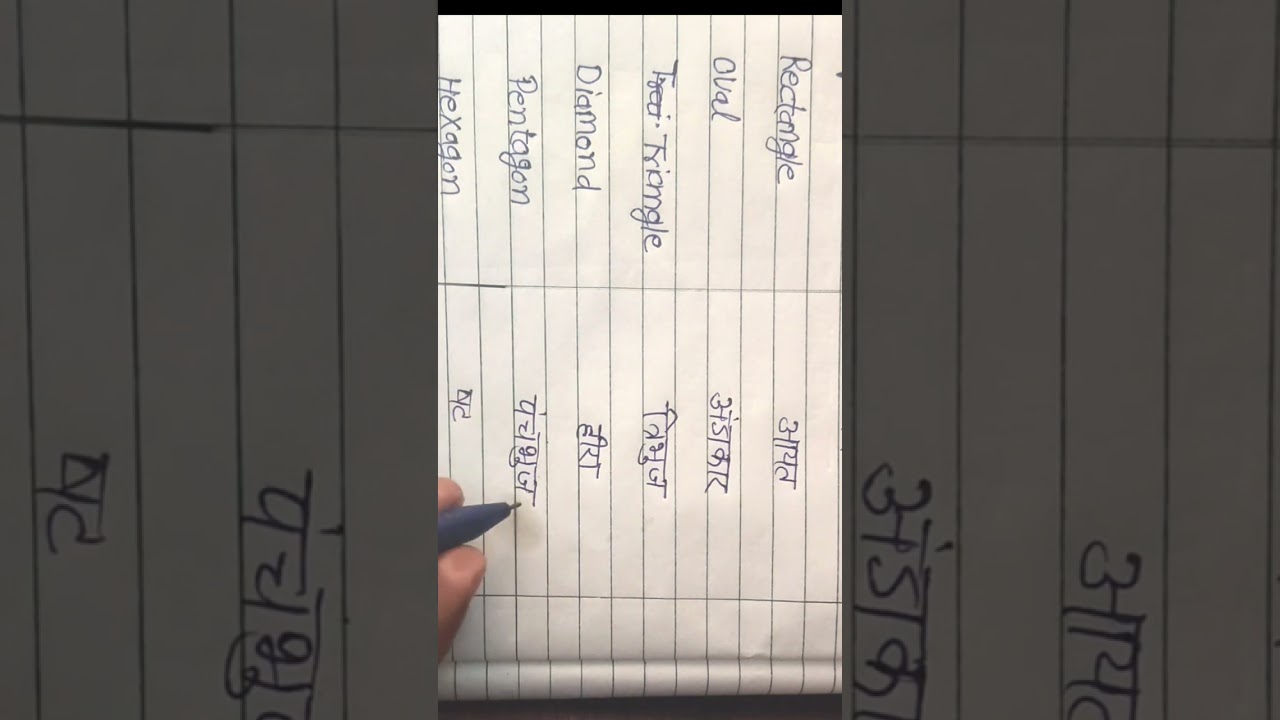 Rectangle आयत
Oval अंडाकार
Triangle त्रिभुज
Diamond हीरा
Pentagon पंचभुज
Hexagon षट